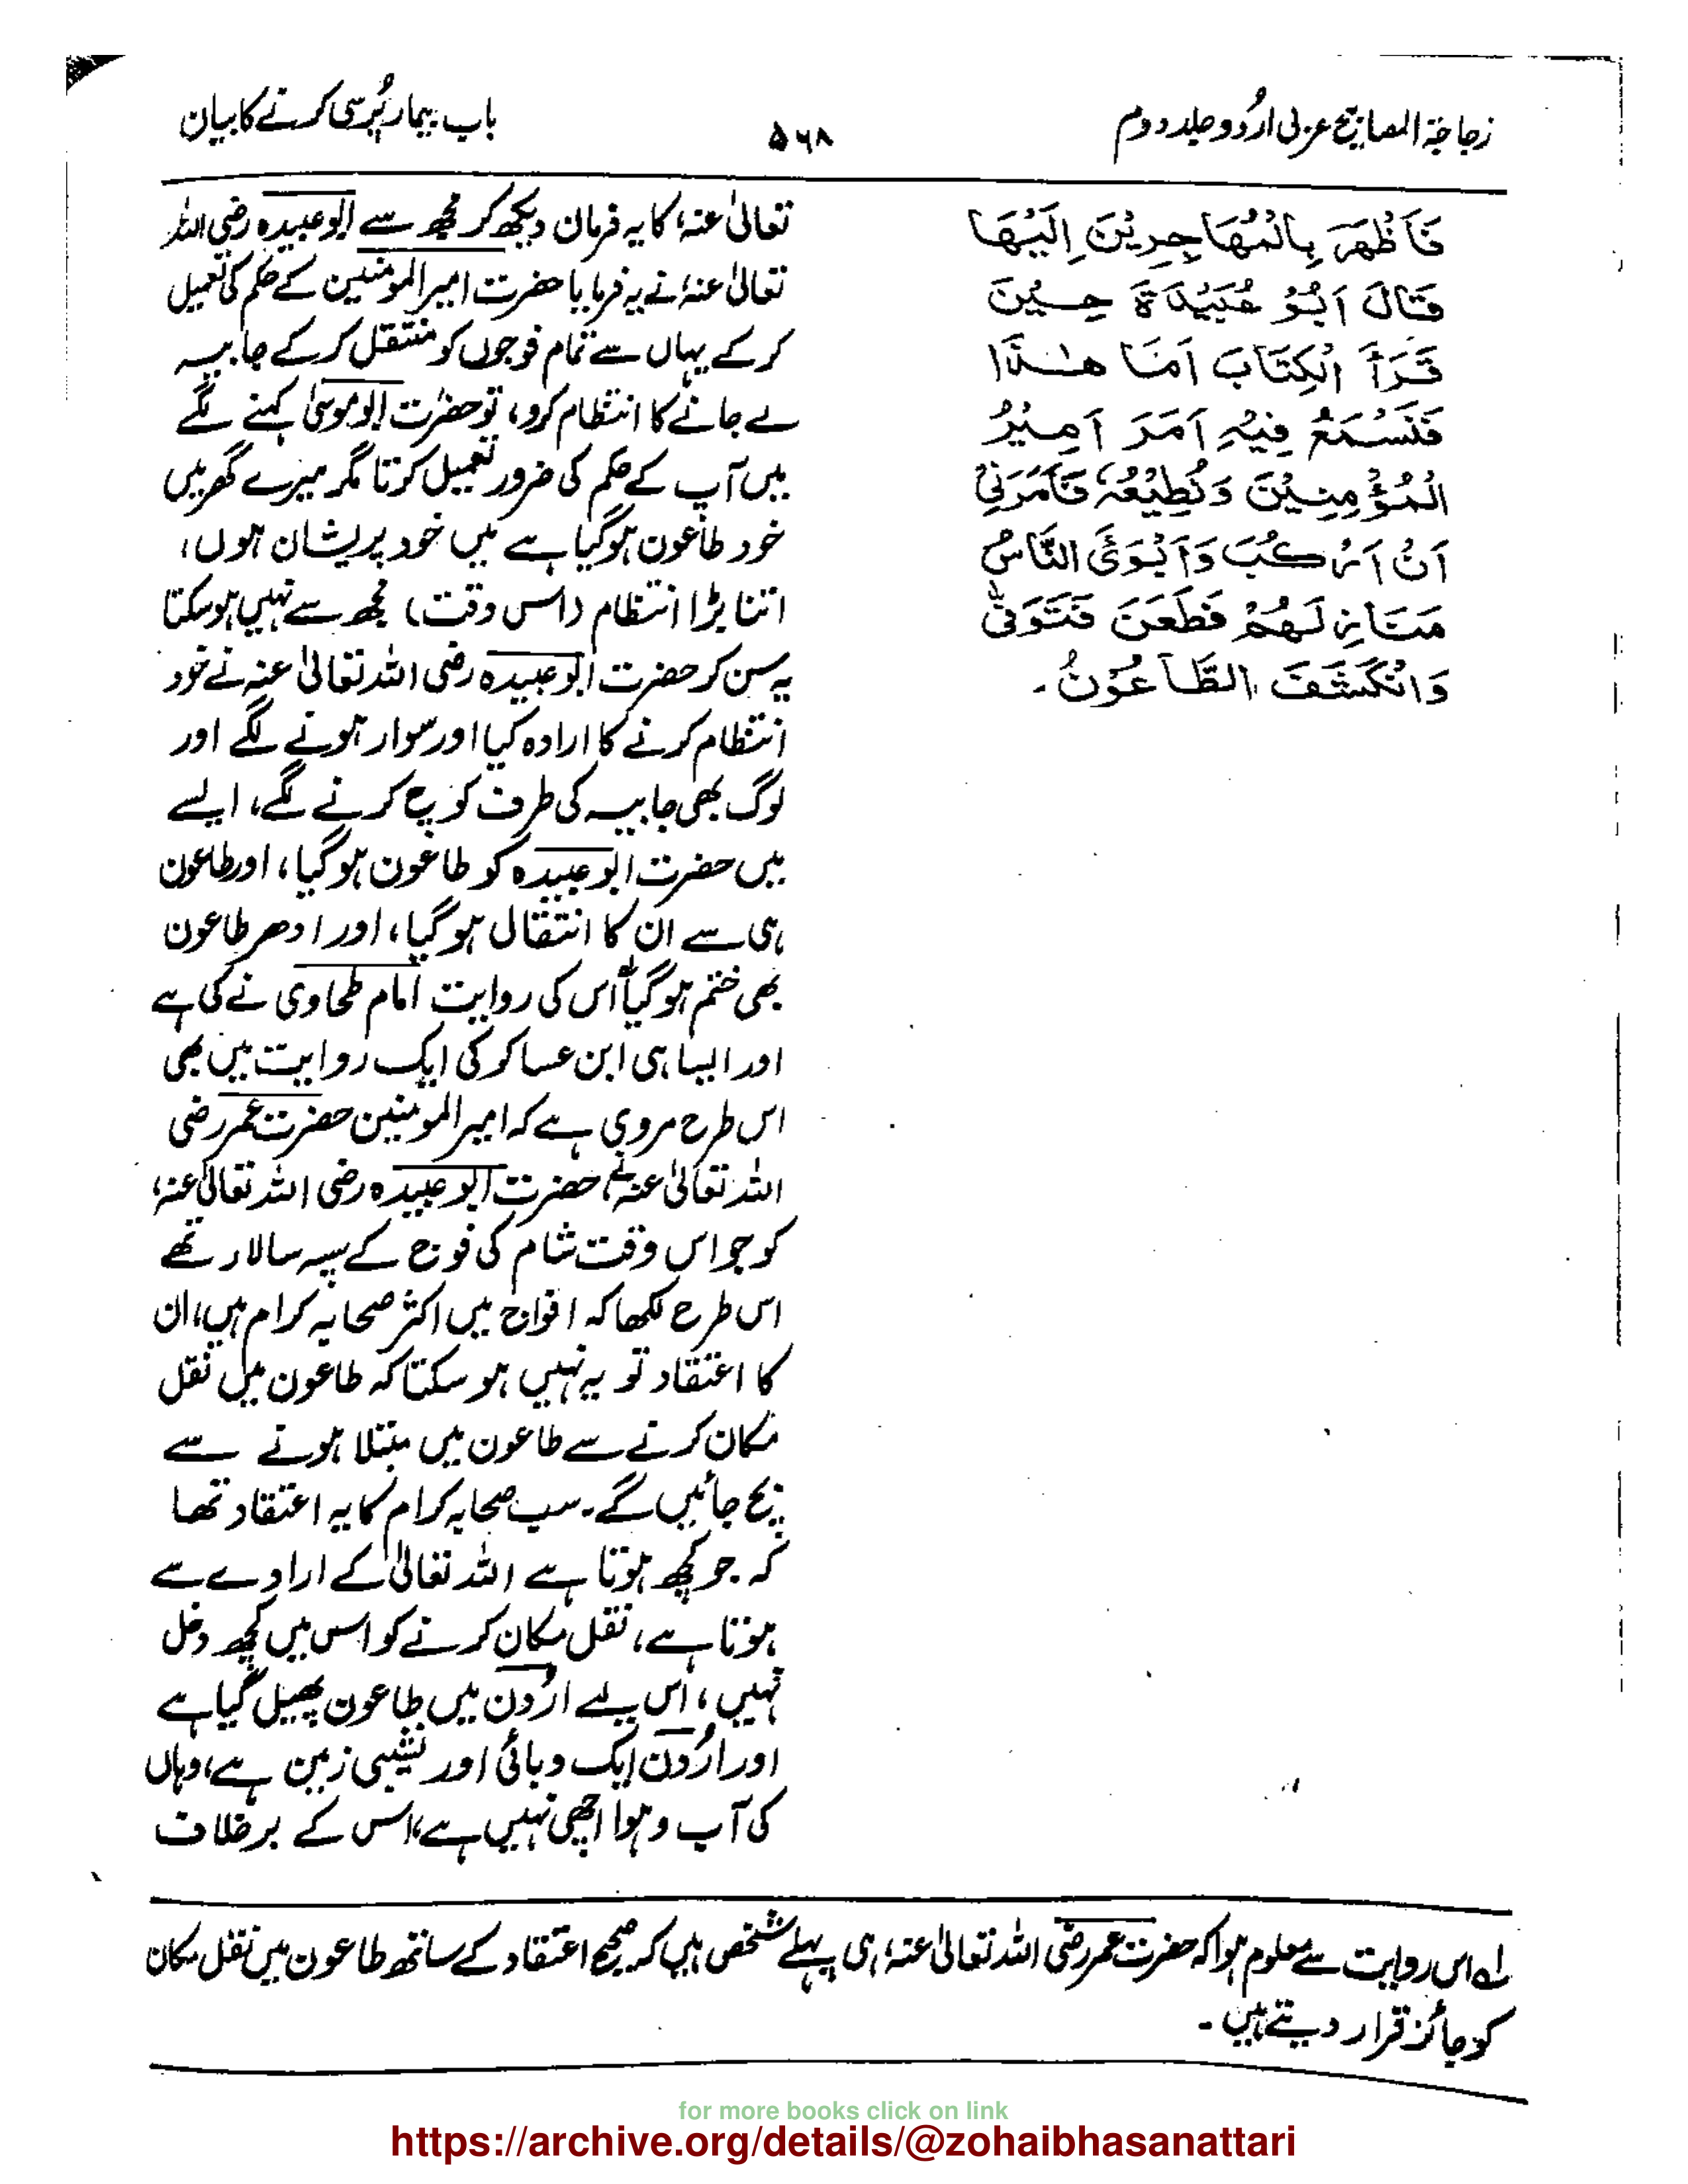 زجاجۃ المصابیح عربی اردو جلد دوم
۵۶۸
باب بیمار پُرسی کرنے کا بیان
فَاَظْهَرَ بِالْمُهَاجِرِيْنَ اِلَيْهَا
فَقَالَ اَبُوْ عُبَيْدَةَ حِيْنَ
قَرَأَ الْكِتَابَ اَمَا هٰذَا
فَنَسْمَعُ فِيْهِ اَمَرَ اَمِيْرُ
الْمُؤْمِنِيْنَ وَنُطِيْعُهٗ فَاَمَرَنِيْ
اَنْ اَرْكُبَ وَاَبْوَئَ النَّاسُ
مَنَازِلَهُمْ فَطَعَنَ فَتَوَفّٰى
وَانْكَشَفَ الطَّاعُوْنُ۔
تعالیٰ عنہٗ کا یہ فرمان دیکھ کر مجھ سے ابوعبیدہ رضی اللہ
تعالیٰ عنہٗ نے یہ فرمایا حضرت امیر المومنین کے حکم کی تعمیل
کر کے یہاں سے تمام فوجوں کو منتقل کر کے جابیہ
لے جانے کا انتظام کرو، تو حضرت ابوموسیٰ کہنے لگے
میں آپ کے حکم کی ضرور تعمیل کرتا مگر میرے گھر میں
خود طاعون ہوگیا ہے میں خود پریشان ہوں،
اتنا بڑا انتظام (اس وقت) مجھ سے نہیں ہو سکتا
یہ سن کر حضرت ابوعبیدہ رضی اللہ تعالیٰ عنہ نے خود
انتظام کرنے کا ارادہ کیا اور سوار ہونے لگے اور
لوگ بھی جابیہ کی طرف کوچ کرنے لگے، ایسے
میں حضرت ابوعبیدہ کو طاعون ہوگیا، اور طاعون
ہی سے ان کا انتقال ہوگیا، اور ادھر طاعون
بھی ختم ہوگیا اس کی روایت امام طحاوی نے کی ہے
اور ایسا ہی ابن عساکر کی ایک روایت میں بھی
اس طرح مروی ہے کہ امیر المومنین حضرت عمر رضی
اللہ تعالیٰ عنہ نے حضرت ابوعبیدہ رضی اللہ تعالیٰ عنہٗ
کو جو اس وقت شام کی فوج کے سپہ سالار تھے
اس طرح لکھا کہ افواج میں اکثر صحابہ کرام ہیں، ان
کا اعتقاد تو یہ نہیں ہو سکتا کہ طاعون میں نقل
مکان کرنے سے طاعون میں مبتلا ہونے سے
بچ جائیں گے۔ سب صحابہ کرام کا یہ اعتقاد تھا
کہ جو کچھ ہوتا ہے اللہ تعالیٰ کے ارادے سے
ہوتا ہے، نقل مکان کرنے کو اس میں کچھ دخل
نہیں، اس لیے اُردن میں طاعون پھیل گیا ہے
اور اُردن ایک وبائی اور نشیبی زمین ہے، وہاں
کی آب و ہوا اچھی نہیں ہے، اس کے برخلاف
لے اس روایت سے معلوم ہوا کہ حضرت عمر رضی اللہ تعالیٰ عنہٗ ہی پہلے شخص ہیں کہ صحیح اعتقاد کے ساتھ طاعون میں نقل مکان
کو جائز قرار دیتے ہیں۔
for more books click on link
https://archive.org/details/@zohaibhasanattari